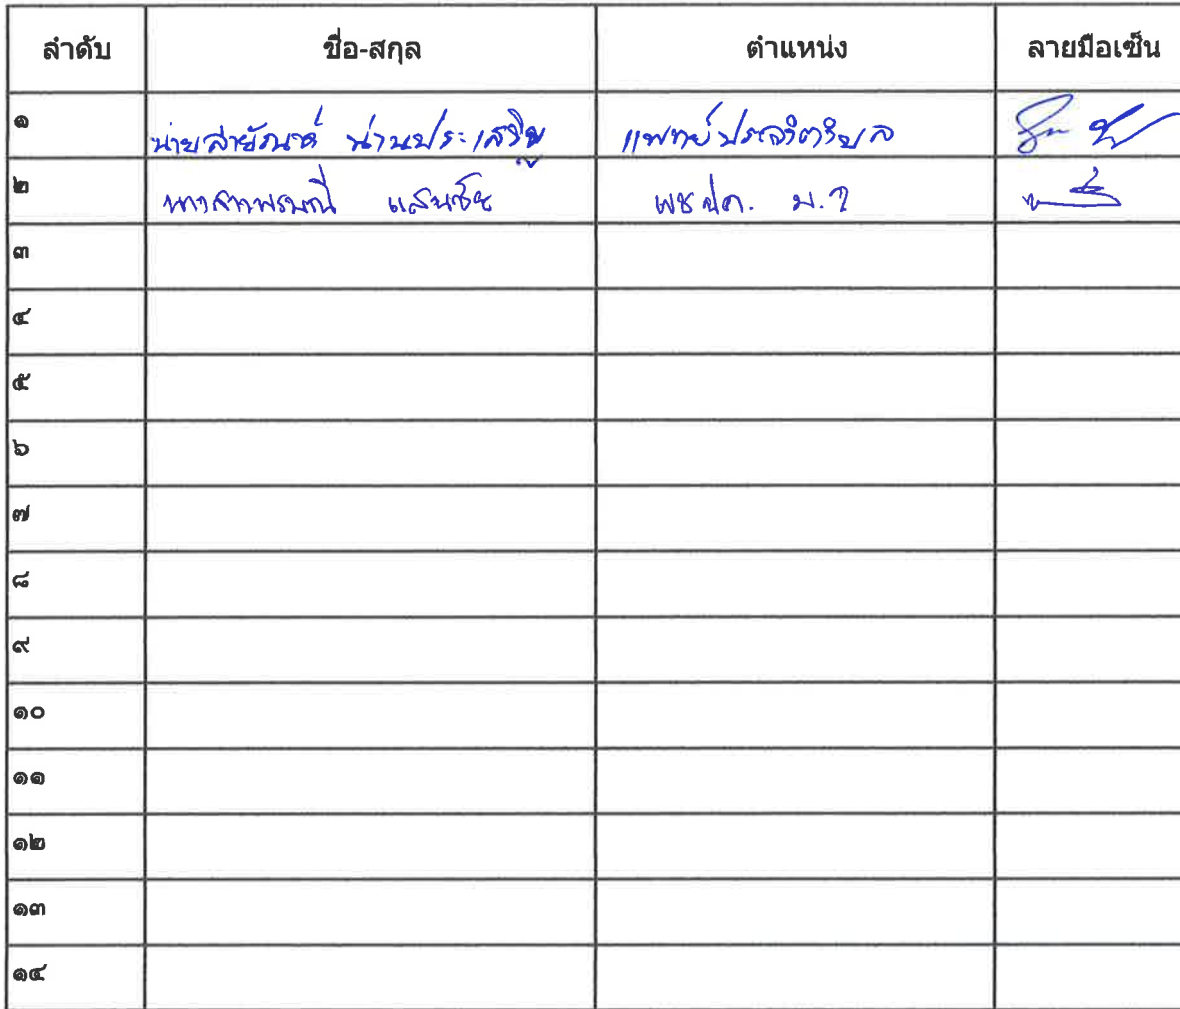 ลำดับ ชื่อ-สกุล ตำแหน่ง ลายมือเซ็น
๑ นายสายัณห์ น่านประเสริฐ แพทย์ประจำตำบล
๒ นางสาวพรรณี แสนชัย ม.็
๓
๔
๕
๖
๗
๘
๙
๑๐
๑๑
๑๒
๑๓
๑๔